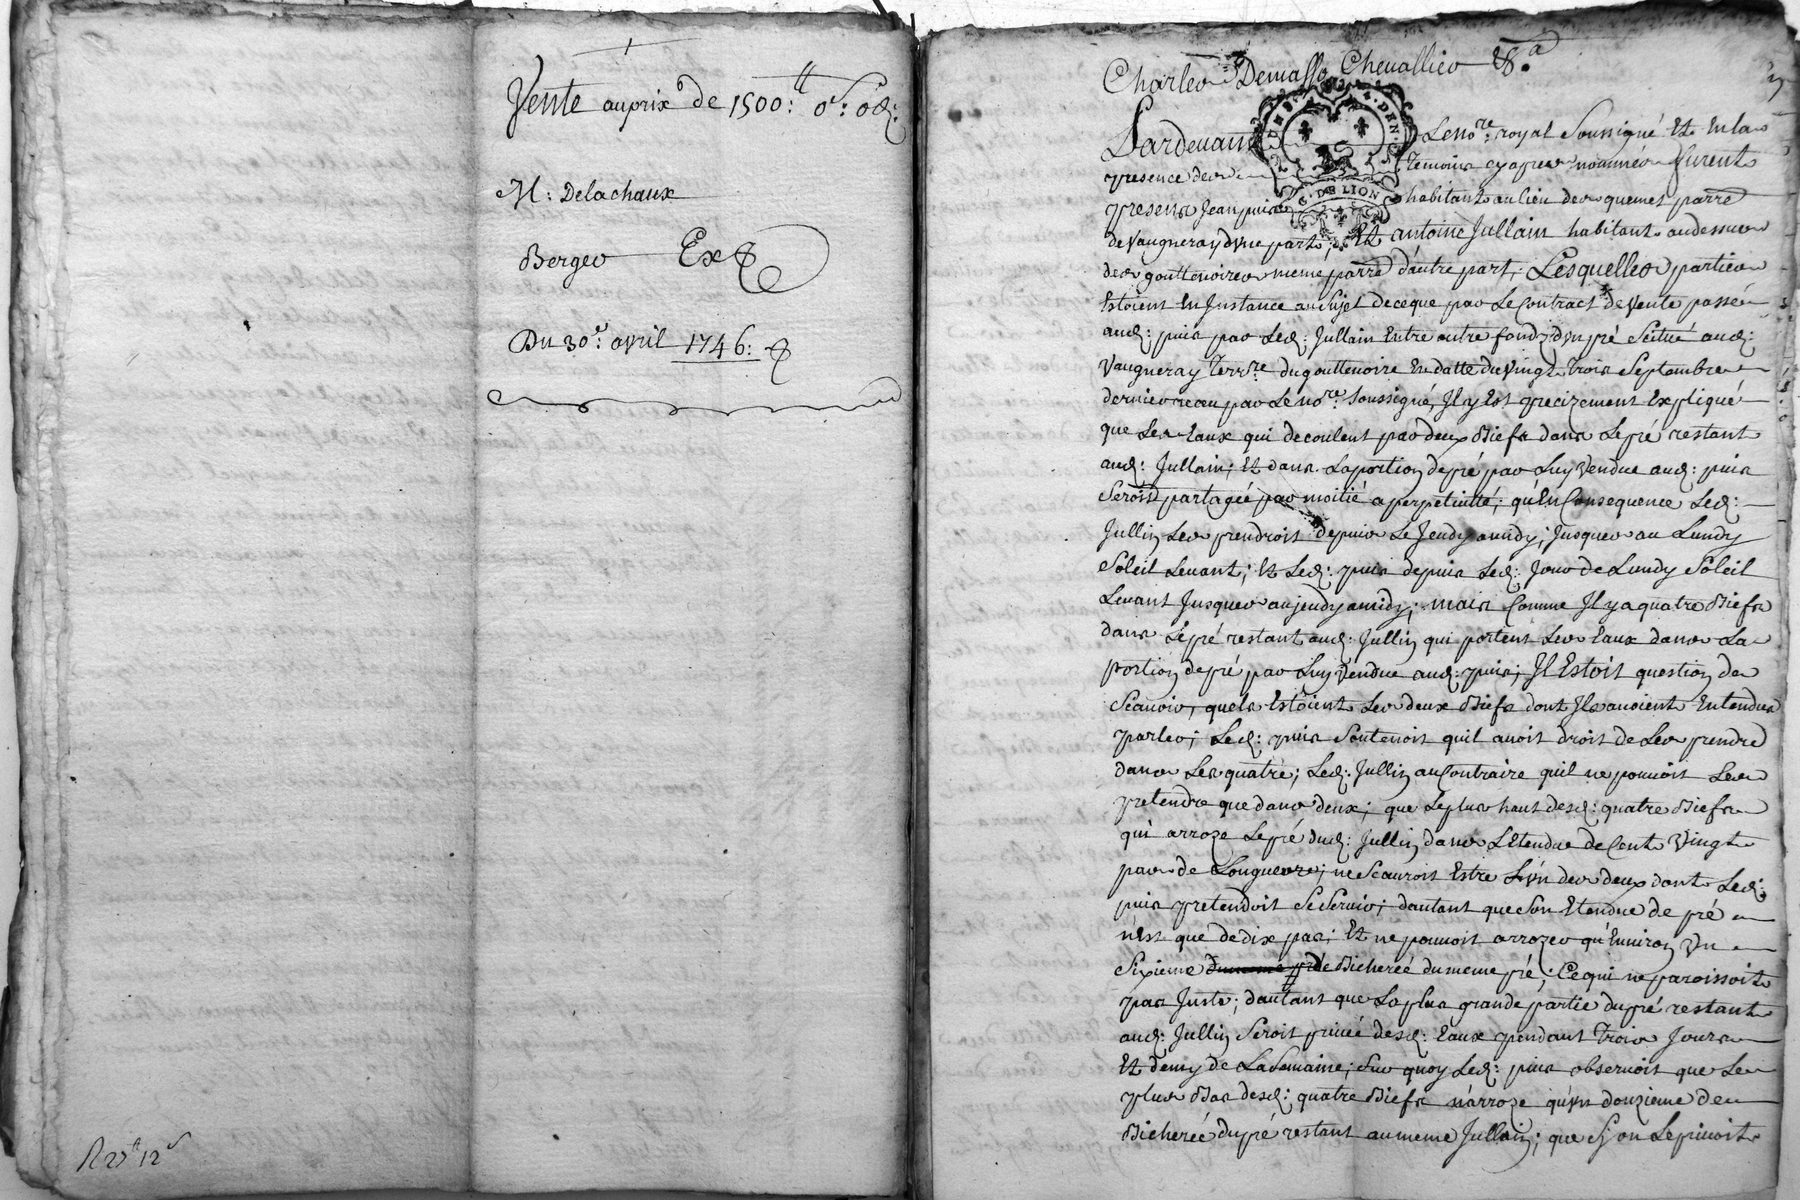 Vente au prix de 1500:tt 0s: 0d:
M: Delachaux
Berger Ex
Du 30e: avril 1746:
R 27tt 12s
Charles Demasso Chevallier &a
Pardevant Le nore: royal Soussigné Et En la
presence des temoins cy apres nommés furent
presens Jean puis habitant au lieu des quemes parre
de Vaugneray d'vne part; Et antoine Jullain habitant au dessus
des gouttenoires meme parre d'autre part; Lesquelles parties
Estoient En Instance au Sujet de ce que par Le Contract de Vente passé
aud: puis par Led: Jullain Entre autre fonds d'vn pré Scitué aud:
Vaugneray Terrre: du gouttenoire En datte du Vingt Trois Septembre
dernier receu par Le nore: Soussigné, Il y Est precizement Expliqué
que Les Eaux qui decoulent par deux Biefs dans Le pré restant
aud: Jullain; Et dans La portion de pré par Luy Vendue aud: puis
Seroit partagée par moitié a perpetuitté; qu'En Consequence Led:
Jullin Les prendroit depuis Le Jeudy a midy; Jusques au Lundy
Soleil Levant; Et Led: puis depuis Led: Jour de Lundy Soleil
Levant Jusques au jeudy a midy; mais Comme Il y a quatre Biefs
dans Le pré restant aud: Jullin qui portent Les Eaux dans La
portion de pré par Luy Vendue aud: puis; Il Estoit question de
Scavoir, quels Estoient Les deux Biefs dont Ils avoient Entendus
parler; Led: puis Soutenoit quil avoit droit de Les prendre
dans Les quatre; Led: Jullin au Contraire quil ne pouvoit Les
pretendre que dans deux; que Le plus haut desd: quatre Biefs
qui arroze Le pré dud: Jullin dans L'Etendue de Cent Vingt
pas de Longueur; ne Scauroit Estre L'vn des deux dont Led:
puis pretendoit Se Servir; dautant que Son Etendue de pré
n'Est que de dix pas; Et ne pouvoit arrozer qu'Environ Vn
Sixieme de Bicherée du meme pré; Ce qui ne paroissoit
pas Juste; dautant que La plus grande partie du pré restant
aud: Jullin Seroit privée desd: Eaux pendant Trois Jours
Et demy de La Semaine; Sur quoy Led: puis observoit que Le
plus Bas desd: quatre Biefs n'arroze qu'vn douzieme de
Bicherée du pré restant au meme Jullain; que Sy on Le privoit